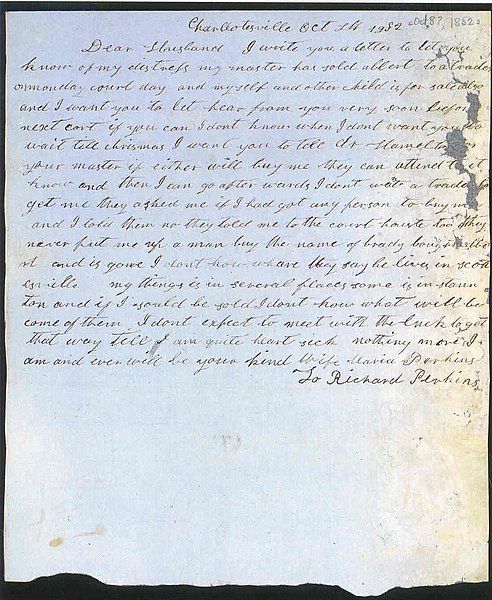 Charllotesville Oct 8th 1852 Oct, 8?, 1852.
Dear Husband I write you a letter to let you
know of my distress my master has sold albert to a trader
on monday court day and myself and other child is for sale also
and I want you to let hear from you very soon before
next cort if you can I dont know when I dont want you to
wait till chrismas I want you to tell dr Hamelton
your master if either will buy me they can attend to it
know and then I can go after wards I dont want a trader to
get me they asked me if I had got any person to buy me
and I told them no they told me to the court houste too they
never put me up a man buy the name of brady bought albe
rt and is gone I dont know whare they say he lives in scott
esville my things is in several places some is in staun
ton and if I sould be sold I dont know what will be
come of them I dont expect to meet with the luck to get
that way till I am quite heart sick nothing more I
am and ever will be your kind wife Maria Perkins
To Richard Perkins